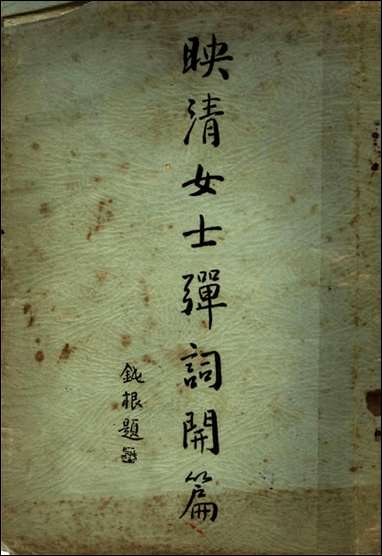 映清女士彈詞開篇
鈍根題